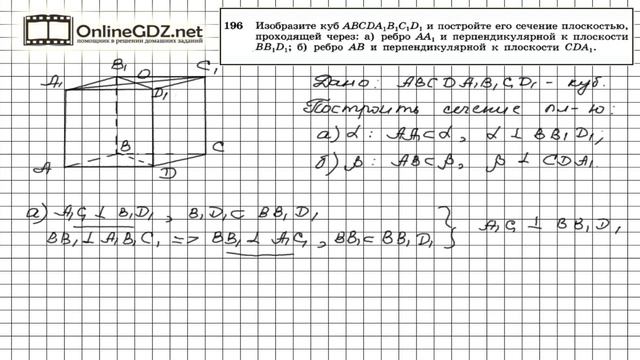 OnlineGDZ.net
помощник в решении домашних заданий
196 Изобразите куб ABCDA₁B₁C₁D₁ и постройте его сечение плоскостью,
проходящей через: а) ребро AA₁ и перпендикулярной к плоскости
BB₁D₁; б) ребро AB и перпендикулярной к плоскости CDA₁.
B₁ O C₁
A₁ D₁
B C
A D
Дано: ABCDA₁B₁C₁D₁ - куб.
Построить сечение пл-ю:
а) α: AA₁⊂α, α ⊥ BB₁D₁;
б) β: AB⊂β, β ⊥ CDA₁.
а) A₁C₁ ⊥ B₁D₁, B₁D₁⊂ BB₁D₁
BB₁ ⊥ A₁B₁C₁ => BB₁ ⊥ A₁C₁, BB₁⊂ BB₁D₁ } A₁C₁ ⊥ BB₁D₁